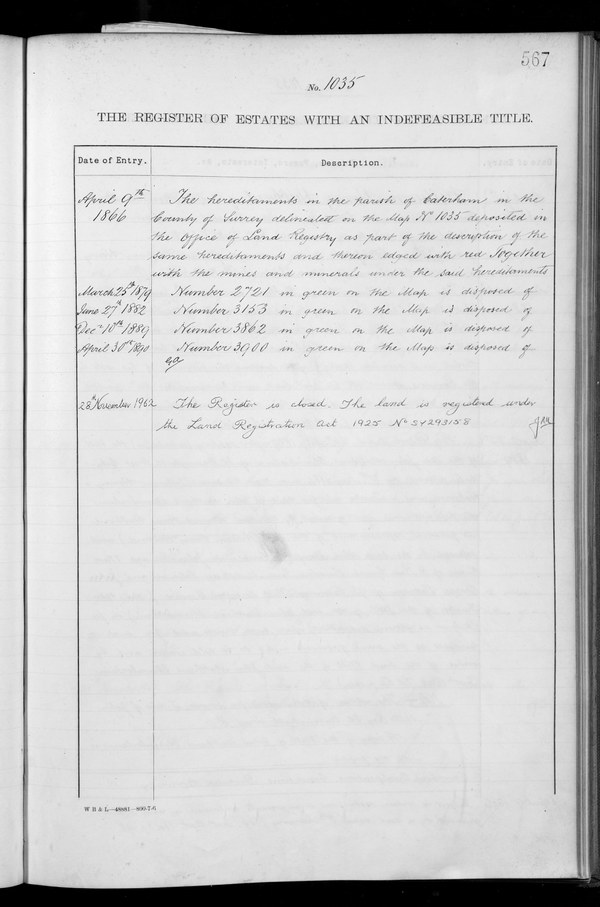 567
No. 1035
THE REGISTER OF ESTATES WITH AN INDEFEASIBLE TITLE.
Date of Entry. Description.
April 9th The hereditaments in the parish of Caterham in the
1866 County of Surrey delineated on the Map No 1035 deposited in
the Office of Land Registry as part of the description of the
same hereditaments and thereon edged with red Together
with the mines and minerals under the said hereditaments
March 25th 1879 Number 2721 in green on the Map is disposed of
June 27th 1882 Number 3153 in green on the Map is disposed of
Decr 10th 1889 Number 3862 in green on the Map is disposed of
April 30th 1890 Number 3900 in green on the Map is disposed of
28th November 1962 The Register is closed. The land is registered under
the Land Registration Act 1925 No SY293158
W B & L—48881—800-7-6